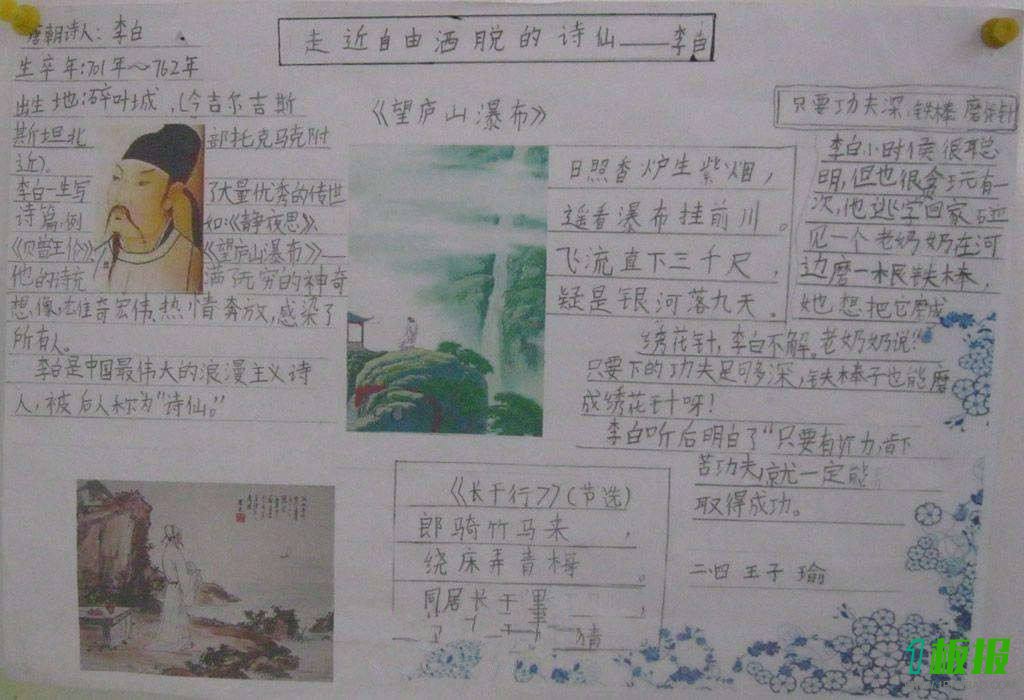 走近自由洒脱的诗仙——李白
唐朝诗人：李白
生卒年:701年～762年
出生地:碎叶城,(今吉尔吉斯
斯坦北部托克马克附
近)。
李白一生写了大量优秀的传世
诗篇,例如:《静夜思》、
《望庐山瀑布》——
他的诗充满了无穷的神奇
想像,雄奇宏伟、热情奔放,感染了
所有人。
李白是中国最伟大的浪漫主义诗
人,被后人称为“诗仙。”
《望庐山瀑布》
日照香炉生紫烟，
遥看瀑布挂前川。
飞流直下三千尺，
疑是银河落九天。
只要功夫深,铁棒磨成针
李白小时候很聪
明,但也很贪玩有一
次,他逃学回家碰
见一个老奶奶在河
边磨一根铁棒,
她想把它磨成
绣花针,李白不解。老奶奶说:“
只要下的功夫足可多深,铁棒子也能磨
成绣花针呀!
李白听后明白了“只要有毅力,肯下
苦功夫,就一定能
取得成功。
《长干行》(节选)
郎骑竹马来，
绕床弄青梅。
同居长干里，
猜
二四 王子瑜
板报